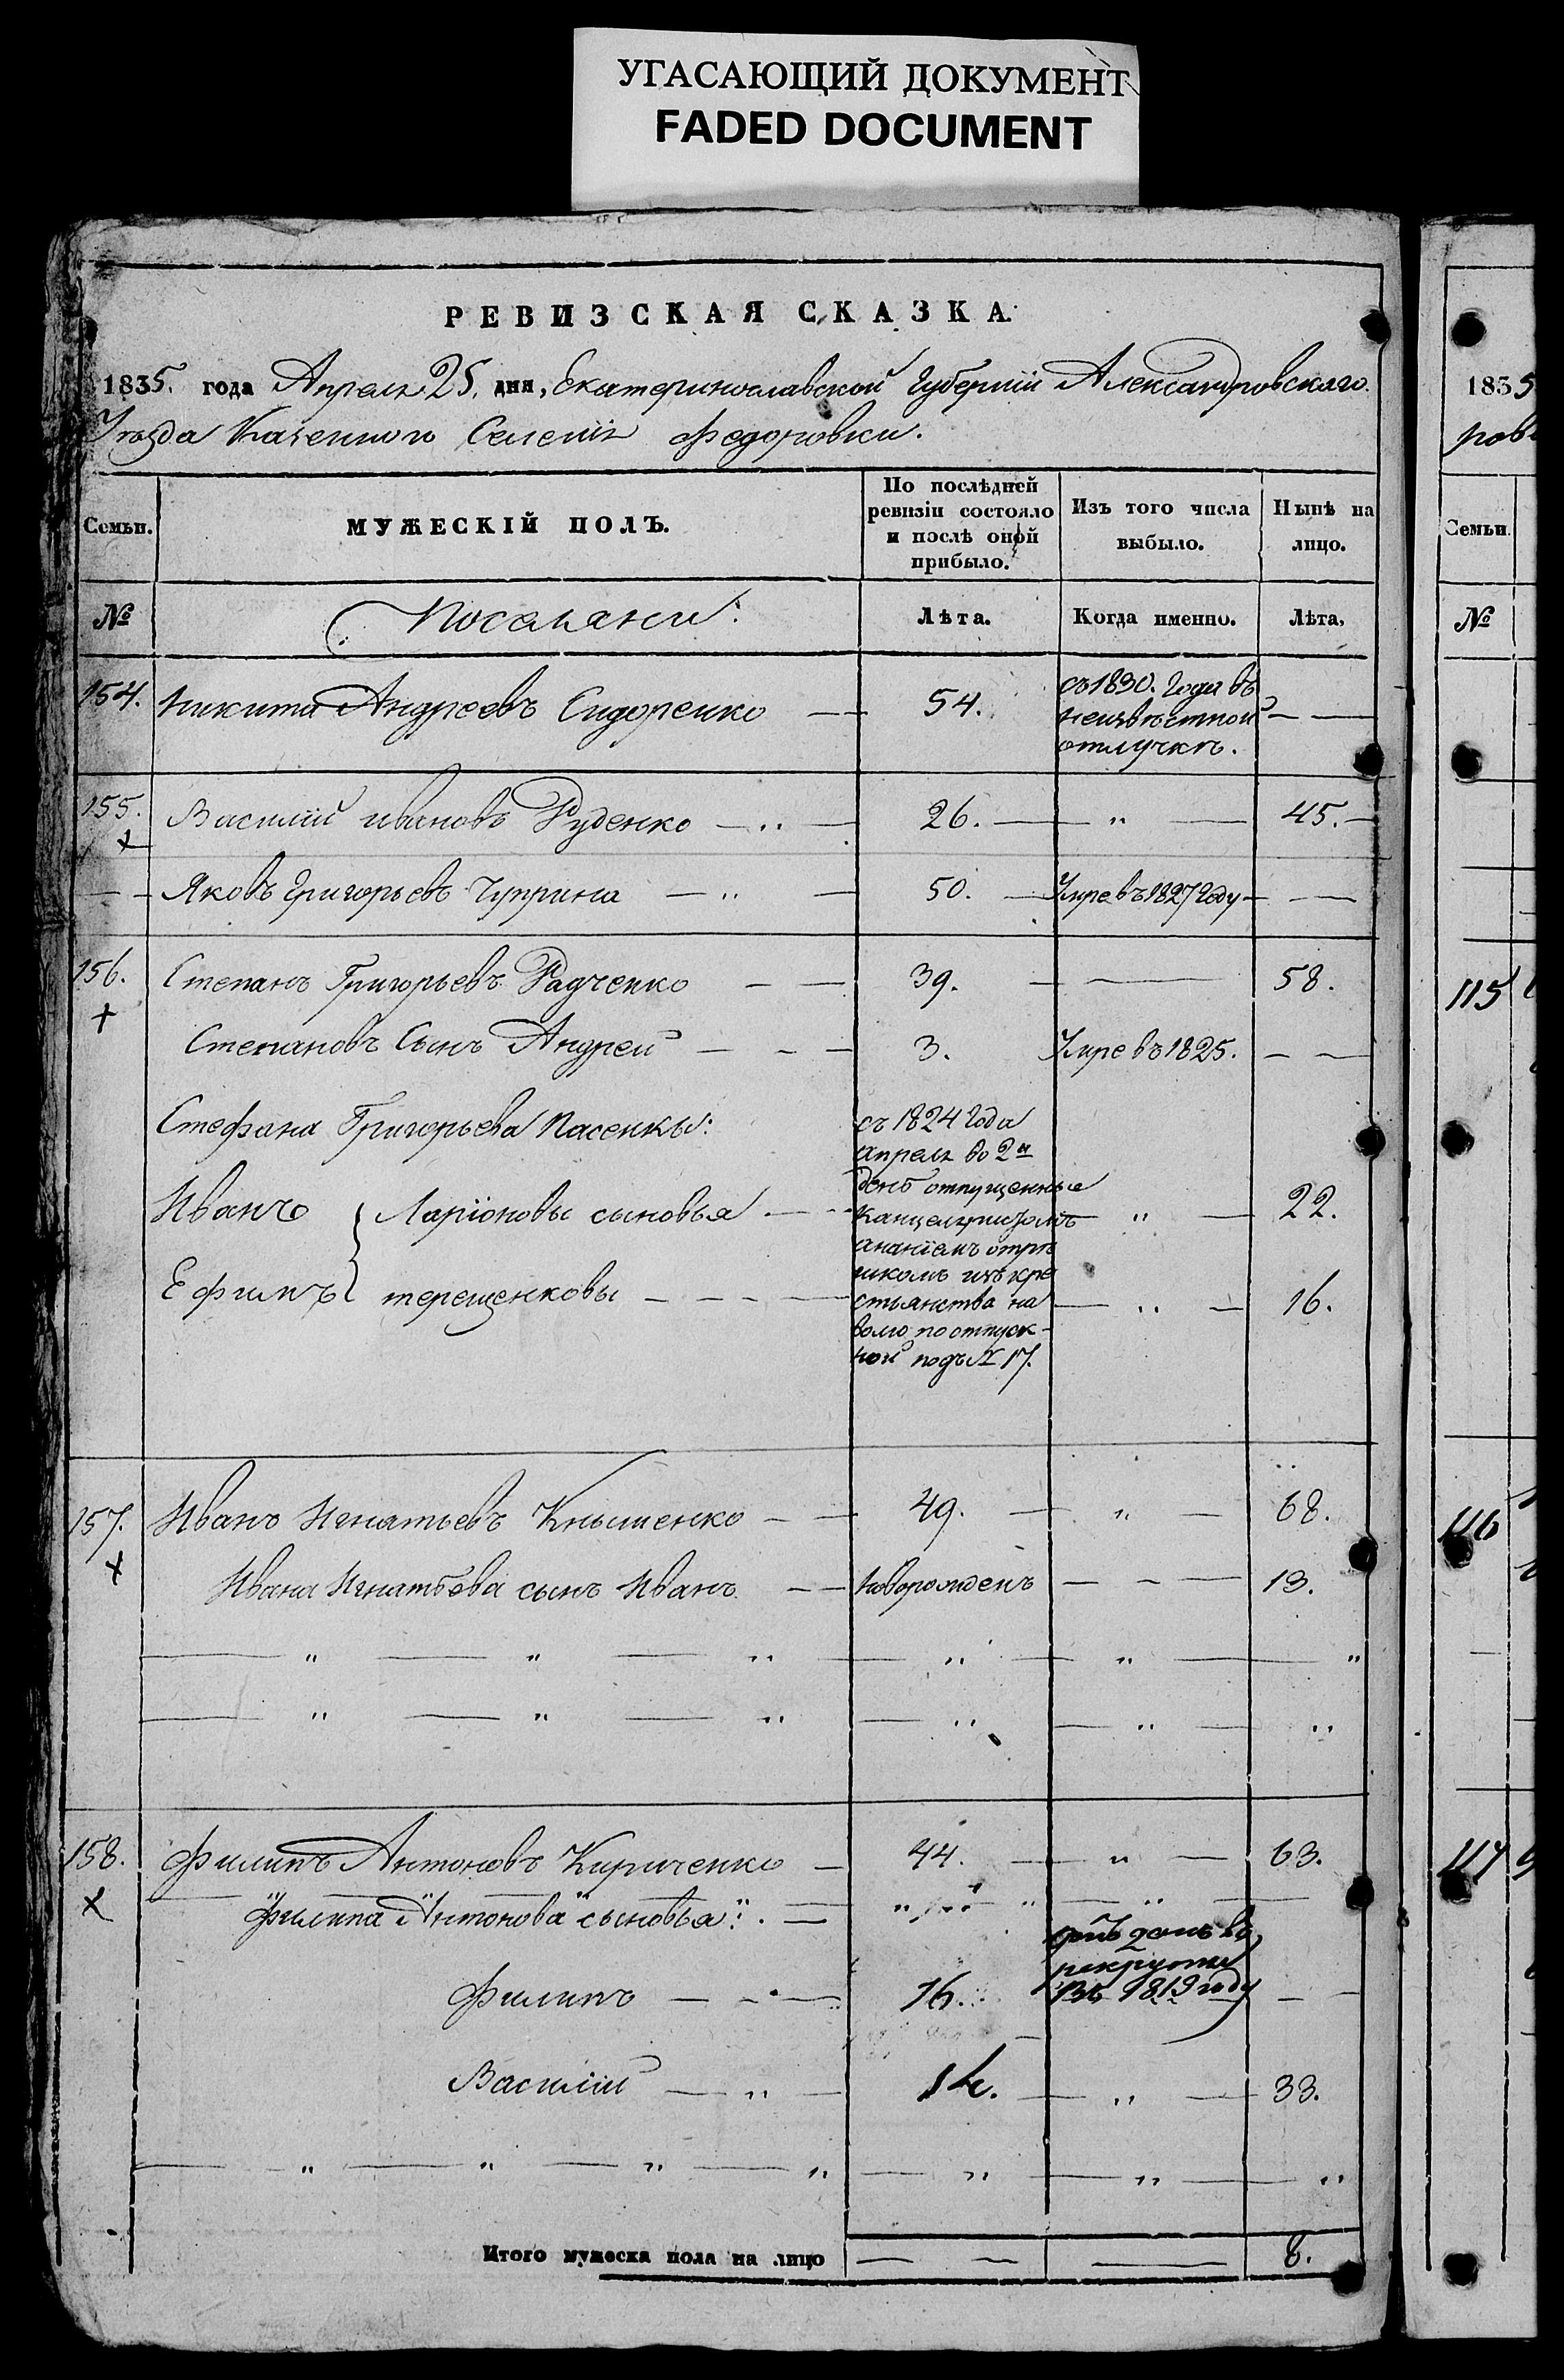 УГАСАЮЩИЙ ДОКУМЕНТ
FADED DOCUMENT
РЕВИЗСКАЯ СКАЗКА.
1835. года Апреля 25. дня, Екатеринославской Губернiи Александровскаго
Уезда Казеннаго Селенiя Федоровки.
Семьи. МУЖЕСКIЙ ПОЛЪ. По послѣдней ревизiи состояло и послѣ оной прибыло. Изъ того числа выбыло. Нынѣ на лицо.
№ Поселяне: Лѣта. Когда именно. Лѣта,
154. Никита Андреевъ Сидоренко — 54. съ 1830. Года въ
неизвѣстной — —
отлучкѣ.
155. Василiй ивановъ Руденко — „ — 26. — „ — 45. —
×
— Яковъ Григорьевъ Чуприна — „ — 50. — Умре въ 1827 Году — —
156. Степанъ Григорьевъ Радченко — — 39. — — 58.
+
Степановъ Сынъ Андрей — - — 3. Умре въ 1825. — —
Стефана Григорьева Пасенки: съ 1824 Года
апреля во 2й
Иванъ } Ларiоновы сыновья — день отпущенные
— „ — 22.
Ефимъ } терещенковы — - - —
стьянства на — „ — 16.
волю по отпуск-
ной подъ № 17.
157. Иванъ Игнатьевъ Кнышенко — — 49. — „ — 68.
×
Ивана Игнатьева сынъ Иванъ — — новорожденъ — - — 13.
— „ — „ — „ — „ — „ — „
— „ — „ — „ — „ — „ — „
158. Филипъ Антоновъ Кириченко — 44. — „ — 63.
×
Филипа Антонова сыновья: . — „ „ — „ —
рекруты
Филипъ — - — 16. Въ 1819 году — —
Василiй — „ — 14. — „ — 33.
— „ — „ — „ — „ — „ — „ — „
Итого мужеска пола на лицо — — — 8.
1835
ров
Семьи.
№
115
116
117